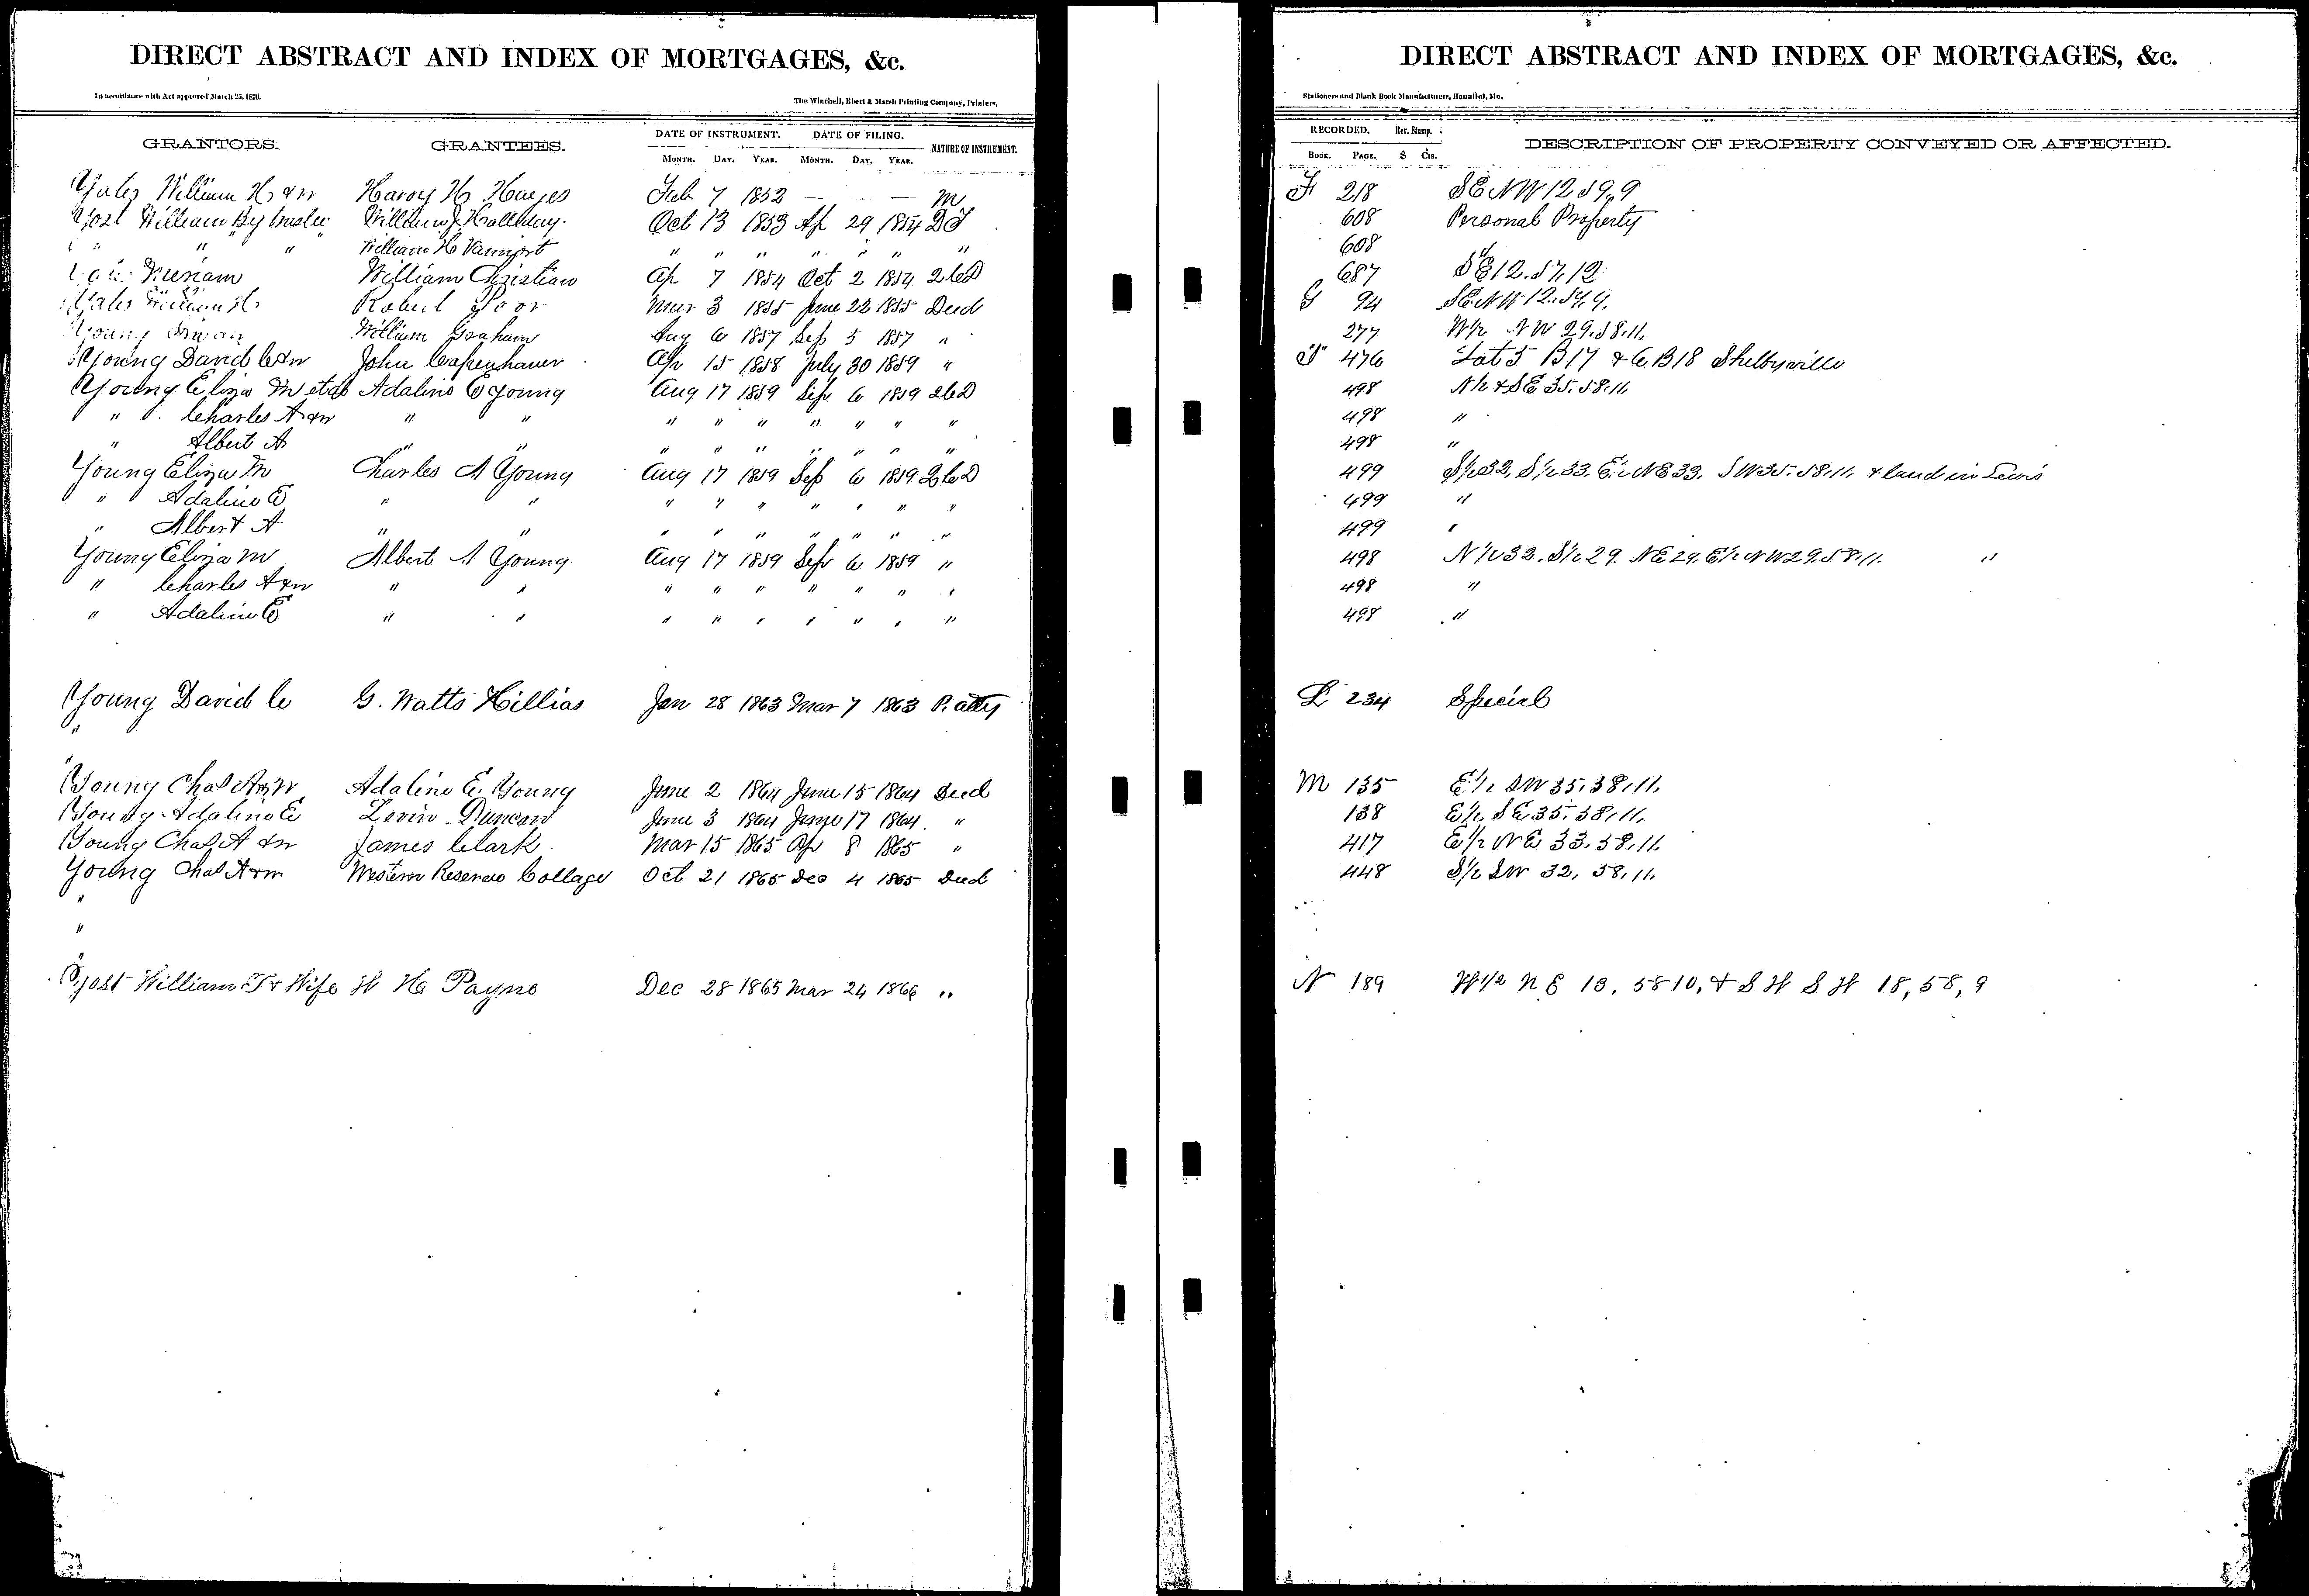 DIRECT ABSTRACT AND INDEX OF MORTGAGES, &c.
In accordance with Act approved March 25, 1870.
The Winchell, Ebert & Marsh Printing Company, Printers,
GRANTORS. GRANTEES. DATE OF INSTRUMENT. DATE OF FILING. NATURE OF INSTRUMENT.
MONTH. DAY. YEAR. MONTH. DAY. YEAR.
Yates William H &w Harvey H Feb 7 1852 — — — M
Yost William By trustee William J. Oct 13 1853 Ap 29 1854 DT
" " " William H Vannort " " " " " " "
William Christian Ap 7 1854 Oct 2 1854 2CD
Yates William H Robert Poor Mar 3 1855 June 22 1855 Deed
Young William Graham Aug 6 1857 Sep 5 1857 "
Young David C &w John Capenhaver Ap 15 1858 July 30 1859 "
Young Eliza M et al Adaline E Young Aug 17 1859 Sep 6 1859 2CD
" Charles A &w " " " " " " " " "
" Albert A " " " " " " " " "
Young Eliza M Charles A Young Aug 17 1859 Sep 6 1859 2CD
" Adaline E " " " " " " " " "
" Albert A " " " " " " " " "
Young Eliza M Albert A Young Aug 17 1859 Sep 6 1859 "
" Charles A &w " " " " " " " " "
" Adaline E " " " " " " " " "
Young David C G. Watts Hillias Jan 28 1863 Mar 7 1863 P. atty
"
"
Young Chas A &w Adaline E Young June 2 1864 June 15 1864 Deed
Young Adaline E Levin Duncan June 3 1864 June 17 1864 "
Young Chas A &w James Clark Mar 15 1865 Ap 8 1865 "
Young Chas A &w Western Reserve Collage Oct 21 1865 Dec 4 1865 Deed
"
"
"
Yost William T & Wife W H Payne Dec 28 1865 Mar 24 1866 "
DIRECT ABSTRACT AND INDEX OF MORTGAGES, &c.
Stationers and Blank Book Manufacturers, Hannibal, Mo.
RECORDED. Rev. Stamp. DESCRIPTION OF PROPERTY CONVEYED OR AFFECTED.
BOOK. PAGE. $ Cts.
F 218 SE NW 12 59, 9
608 Personal Property
608 "
687 SE 12. 57, 12
G 94 SE. NW 12. 59, 9.
277 W½ NW 29. 58. 11,
476 Lot 5 B17 & 6. B18 Shelbyville
498 N½ & SE 35. 58. 11,
498 "
498 "
499 S½ 32, S½ 33. E½ NE 33. SW 35. 58. 11, & land in Lewis
499 "
499 "
498 N½ 32. S½ 29. NE 29. E½ NW 29. 58. 11. "
498 "
498 "
L 234 Special
M 135 E½ SW 35, 58, 11,
138 E½ SE 35, 58, 11,
417 E½ NE 33, 58, 11,
448 S½ SW 32, 58, 11.
N 189 W 1/2 N E 13, 58 10, & S W S W 18, 58, 9